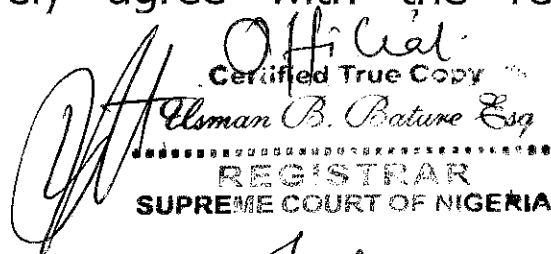 agree with the
Official
Certified True Copy
Usman B. Bature Esq
REGISTRAR
SUPREME COURT OF NIGERIA